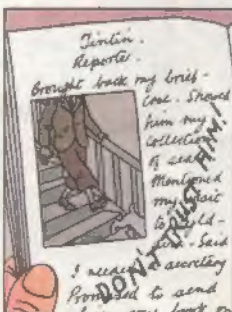 Tintin.
Reporter.
Brought back my brief-
case. Showed
him my
collection
of
Mentioned
my visit
to
Said
I needed a secretary
Promised to send
DON'T TRUST HIM!